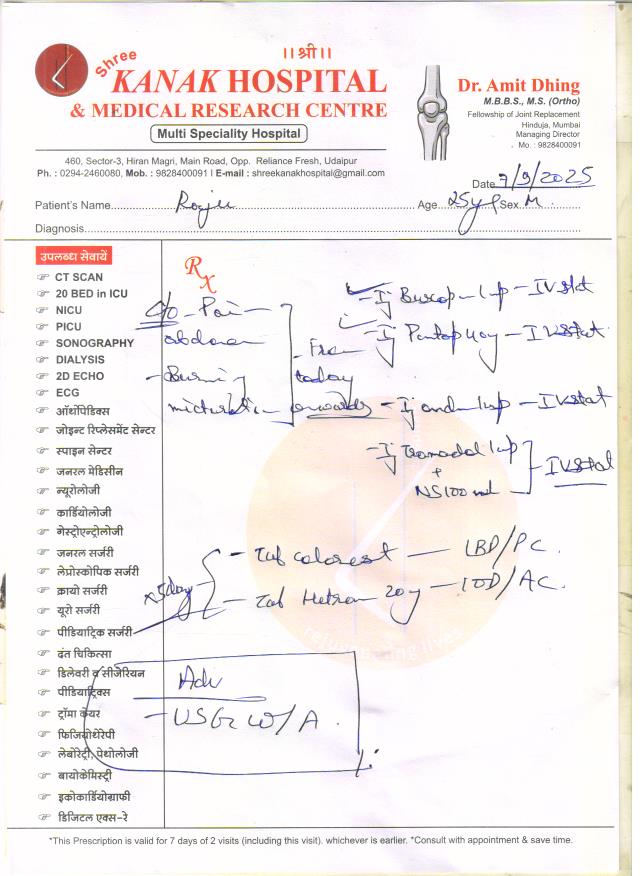 ।।श्री।।
Shree
KANAK HOSPITAL
& MEDICAL RESEARCH CENTRE
Multi Speciality Hospital
Dr. Amit Dhing
M.B.B.S., M.S. (Ortho)
Fellowship of Joint Replacement
Hinduja, Mumbai
Managing Director
Mo. : 9828400091
460, Sector-3, Hiran Magri, Main Road, Opp. Reliance Fresh, Udaipur
Ph. : 0294-2460080, Mob. : 9828400091 | E-mail : shreekanakhospital@gmail.com
Date 7/9/2025
Patient's Name Raju Age 25y Sex M
Diagnosis
उपलब्ध सेवायें
CT SCAN
20 BED in ICU
NICU
PICU
SONOGRAPHY
DIALYSIS
2D ECHO
ECG
ऑर्थोपेडिक्स
जोइन्ट रिप्लेसमेंट सेन्टर
स्पाइन सेन्टर
जनरल मेडिसीन
न्यूरोलोजी
कार्डियोलोजी
गेस्ट्रोएन्ट्रोलोजी
जनरल सर्जरी
लेप्रोस्कोपिक सर्जरी
क्रायो सर्जरी
यूरो सर्जरी
पीडियाट्रिक सर्जरी
दंत चिकित्सा
डिलेवरी व सीजेरियन
पीडियाट्रिक्स
ट्रॉमा केयर
फिजियोथेरेपी
लेबोरेट्री, पेथोलोजी
बायोकेमिस्ट्री
इकोकार्डियोग्राफी
डिजिटल एक्स-रे
Rx
C/O - Pain
abdomen
- Burning
micturation
- From
today
onwards
- Ij Buscop - 1up - IV stat
- Ij Pantop 40y - IV stat
- Ij 1up - IV stat
- Ij Tramadol 1up
+
NS 100 ml
- IV stat
x 5 day
- Tab - 1BD/PC
- Tab 20y - 1OD/AC
Adv
- USG W/A
*This Prescription is valid for 7 days of 2 visits (including this visit). whichever is earlier. *Consult with appointment & save time.